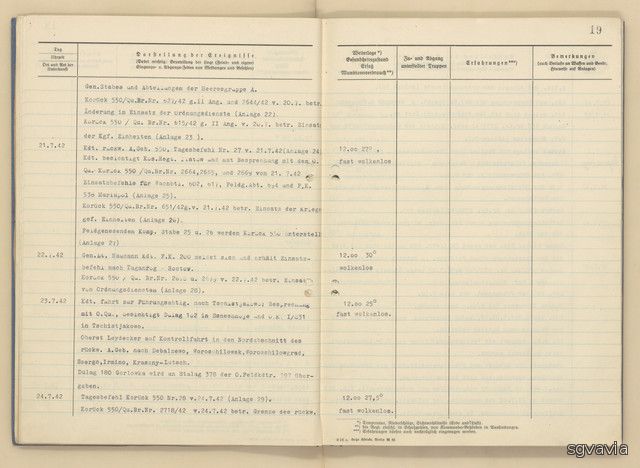 19
Tag
Uhrzeit
Ort und Art der Unterkunft
Darstellung der Ereignisse
(Dabei wichtig: Beurteilung der Lage (Feind- und eigene)
Eingangs- u. Abgangs-Zeiten von Meldungen und Befehlen)
Wetterlage *)
Gefechtsgegenstand
Erfolg
Munitionsverbrauch **)
Zu- und Abgang
unterstellter Truppen
Erfahrungen ***)
Bemerkungen
(auch Verluste an Waffen und Gerät,
Hinweise auf Anlagen)
Gen.Stabes und Abteilungen der Heeresgruppe A.
Korück 550/Qu.Br.Nr. g.II Ang. und 7644/42 v. 20.7. betr.
Änderung im Einsatz der Ordnungsdienste (Anlage 22).
Korück 550 / Qu. Br.Nr. 615/42 g. II Ang. v. 20.7. betr. Einsatz
der Kgf. Einheiten (Anlage 23).
21.7.42
Kdt. rückw. A.Geb. 550, Tagesbefehl Nr. 27 v. 21.7.42(Anlage 24)
12.00 27°,
Kdt. besichtigt und hat Besprechung mit dem O.
fast wolkenlos
Qu. Korück 550 /Qu.Br.Nr. 2664,2665, und 2669 vom 21. 7.42
Einsatzbefehle für Wachbtl. 602, Feldg.Abt. und F.K.
538 Mariupol (Anlage 25).
Korück 550/Qu.Br.Nr. 651/42g.v. betr. Einsatz der Kriegs
gef. Einheiten (Anlage 26).
Feldgenesenden Komp. Stabe 25 u. 26 werden Korück 550 unterstellt
(Anlage 27)
22.7.42
Gen.Lt. Naumann Kdt. F.K. 200 meldet sich und erhält Einsatz-
12.00 30°
befehl nach Taganrog - Rostow.
wolkenlos
Korück 550 / Qu. Br.Nr. u. v. 22.7.42 betr. Einsatz
von Ordnungsdiensten (Anlage 28).
23.7.42
Kdt. fährt zur Führungsabtlg. nach Tschistjakowo; Besprechung
12.00 25°
mit O.Qu., besichtigt Dulag 102 in und O.K. I/831
fast wolkenlos.
in Tschistjakowo.
Oberst Leydecker auf Kontrollfahrt in den Nordabschnitt des
rückw. A.Geb. nach Debalzewo, Woroschilowsk, Woroschilowgrad,
Ssergo,Irmino, Krassny-Lutsch.
Dulag 180 Gorlowka wird an Stalag 378 der O.Feldkdtr. 397 über-
geben.
24.7.42
Tagesbefehl Korück 550 Nr.28 v.24.7.42 (Anlage 29).
12.00 27,5°
Korück 550/Qu.Br.Nr. 2718/42 v.24.7.42 betr. Grenze des rückw.
fast wolkenlos.
sgvavia